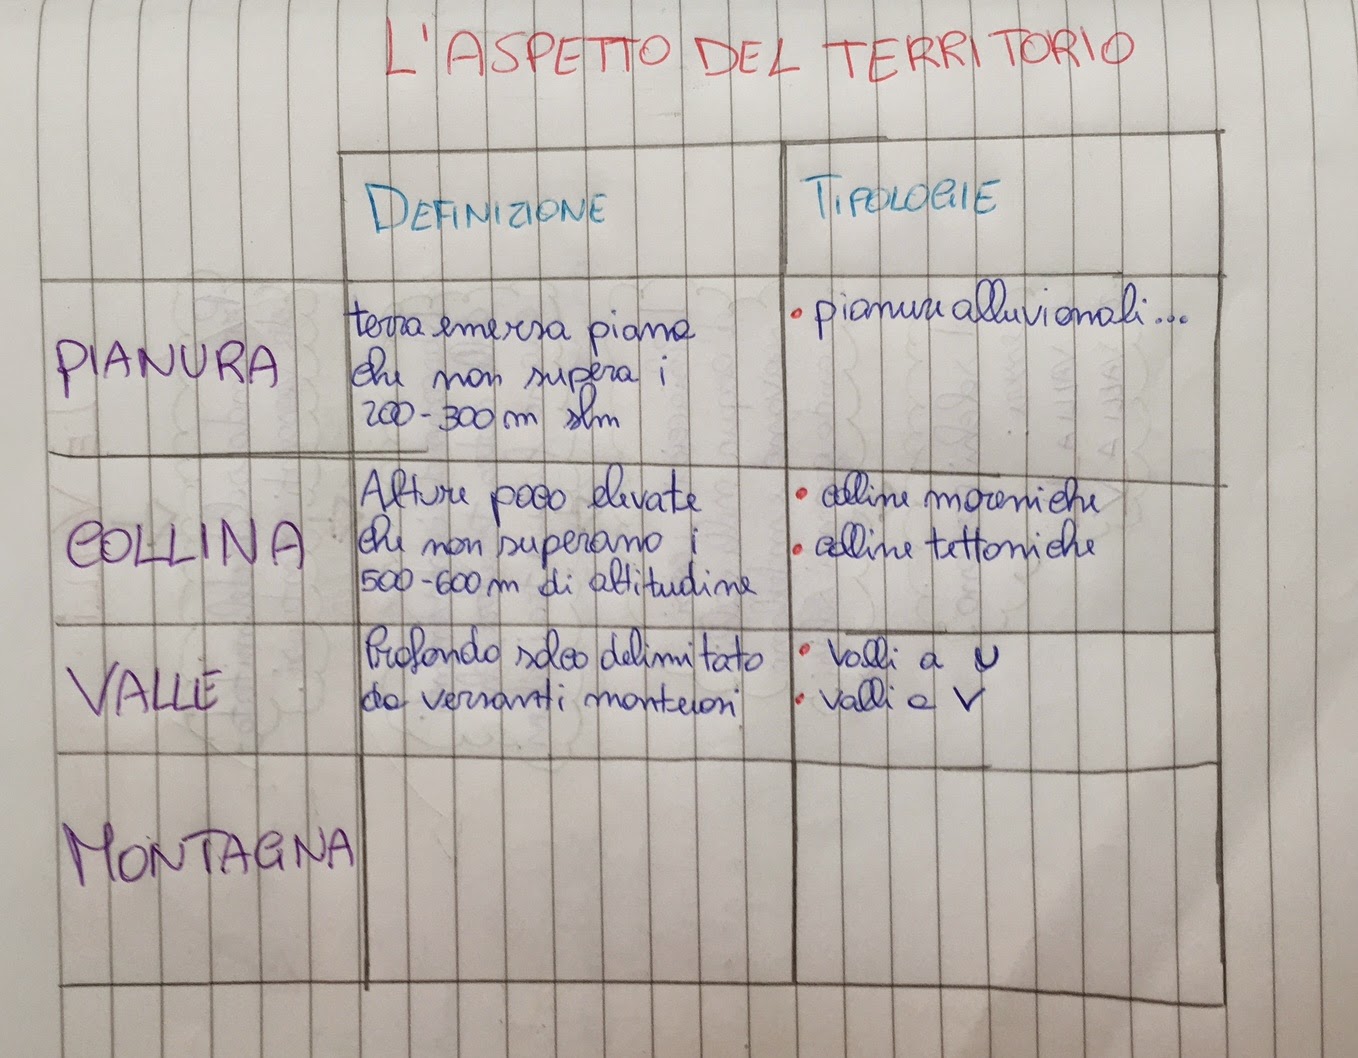 L'ASPETTO DEL TERRITORIO
DEFINIZIONE
TIPOLOGIE
PIANURA
terra emersa piana
che non supera i
200-300 m slm
• pianure alluvionali...
COLLINA
Alture poco elevate
che non superano i
500-600 m di altitudine
• colline moreniche
• colline tettoniche
VALLE
Profondo solco delimitato
da versanti montuosi
• valli a U
• valli a V
MONTAGNA